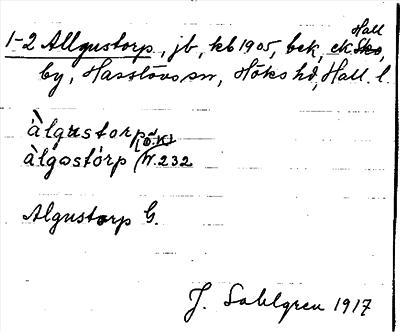 Hall
1-2 Allgustorp, jb, kb 1905, bek, ek Sko,
by, Hasslövs sn, Höks hd, Hall. l.
àlgustorp (Ö.K)
àlgostórp (W. 232
Algustorp G.
J. Sahlgren 1917